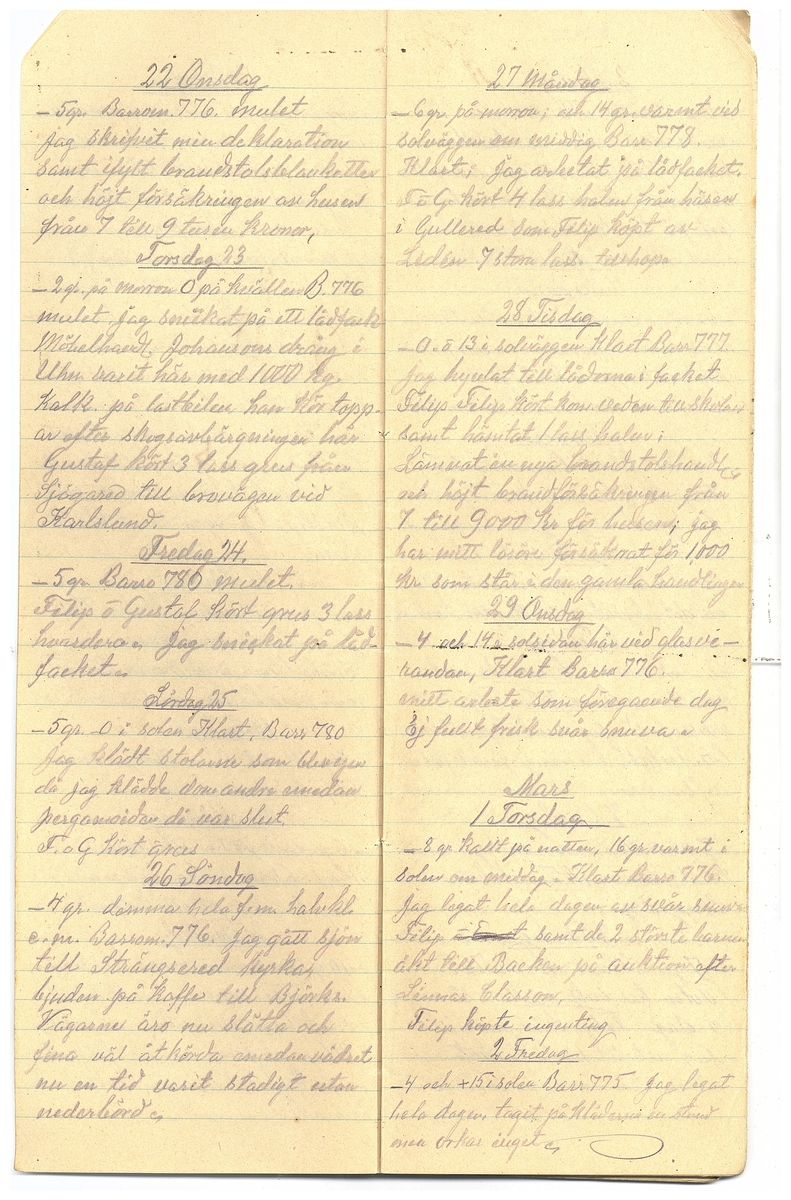 22 Onsdag
– 5 gr. Barrom. 776. mulet
jag skrifvit min deklaration
samt ifylt brandstolsblanketten
och höjt försäkringen av husen
från 7 till 9 tusen kronor,
Torsdag 23
– 2 gr. på morron 0 på kvällen B. 776
mulet. jag snickat på ett lådfack
Möbelhandl. Johansons dräng i
Uhn varit här med 1000 kg.
Kalk. på lastbilen han kör topp-
ar efter skogsavbärgningen här
Gustaf kört 3 lass grus från
Sjögared till brovägen vid
Karlslund.
Fredag 24.
– 5 gr. Barro 780 mulet.
Filip o Gustaf kört grus 3 lass
hvardera. jag snickat på låd-
facket.
Lördag 25
– 5 gr. –0 i solen Klart, Barr 780
Jag klädt stolarne som blev igen
då jag klädde dom andre medan
pergamoiden då var slut.
F. o G kört grus
26 Söndag
– 4 gr. dimma hela f.m. halvkl.
e.m. Barrom. 776. Jag gått sjön
till Strängsered kyrka,
bjuden på kaffe till Björks.
Vägarne äro nu slätta och
fina väl åtkörda medan vädret
nu en tid varit stadigt utan
nederbörd.
27 Måndag
– 6 gr. på morron; och 14 gr. varmt vid
solväggen om middag Barr 778.
Klart; jag arbetat på lådfacket.
F o G. kört 4 lass halm från
i Gullered som Filip köpt av
Leden 7 stora lass. tillhopa
28 Tisdag
– 0. o 13 i solväggen Klart Barr 777
jag hyvlat till lådorna i facket
Filip Filip kört kom veden till skolan
samt hämtat 1 lass halm;
Lämnat in nya brandstolshandl
och höjt brandförsäkringen från
7 till 9000 Kr för husen; jag
har mitt lösöre försäkrat för 1000
kr som står i den gamla handlingen
29 Onsdag
– 4 och 14 i solsidan här ved glasve-
randan, Klart Barro 776.
mitt arbete som föregående dag
Ej fullt frisk svår snuva
Mars
1 Torsdag
– 8 gr. kallt på natten, 16 gr. varmt i
solen om middag. Klart Barro 776.
Jag legat hela dagen av svår snuva
Filip samt de 2 störste barnen
åkt till Backen på auktion efter
Linnar Classon,
Filip köpte ingenting
2 Fredag
– 4 och +15 i solen Barr 775 Jag legat
hela dagen, tagit på kläderna en stund
men orkar inget